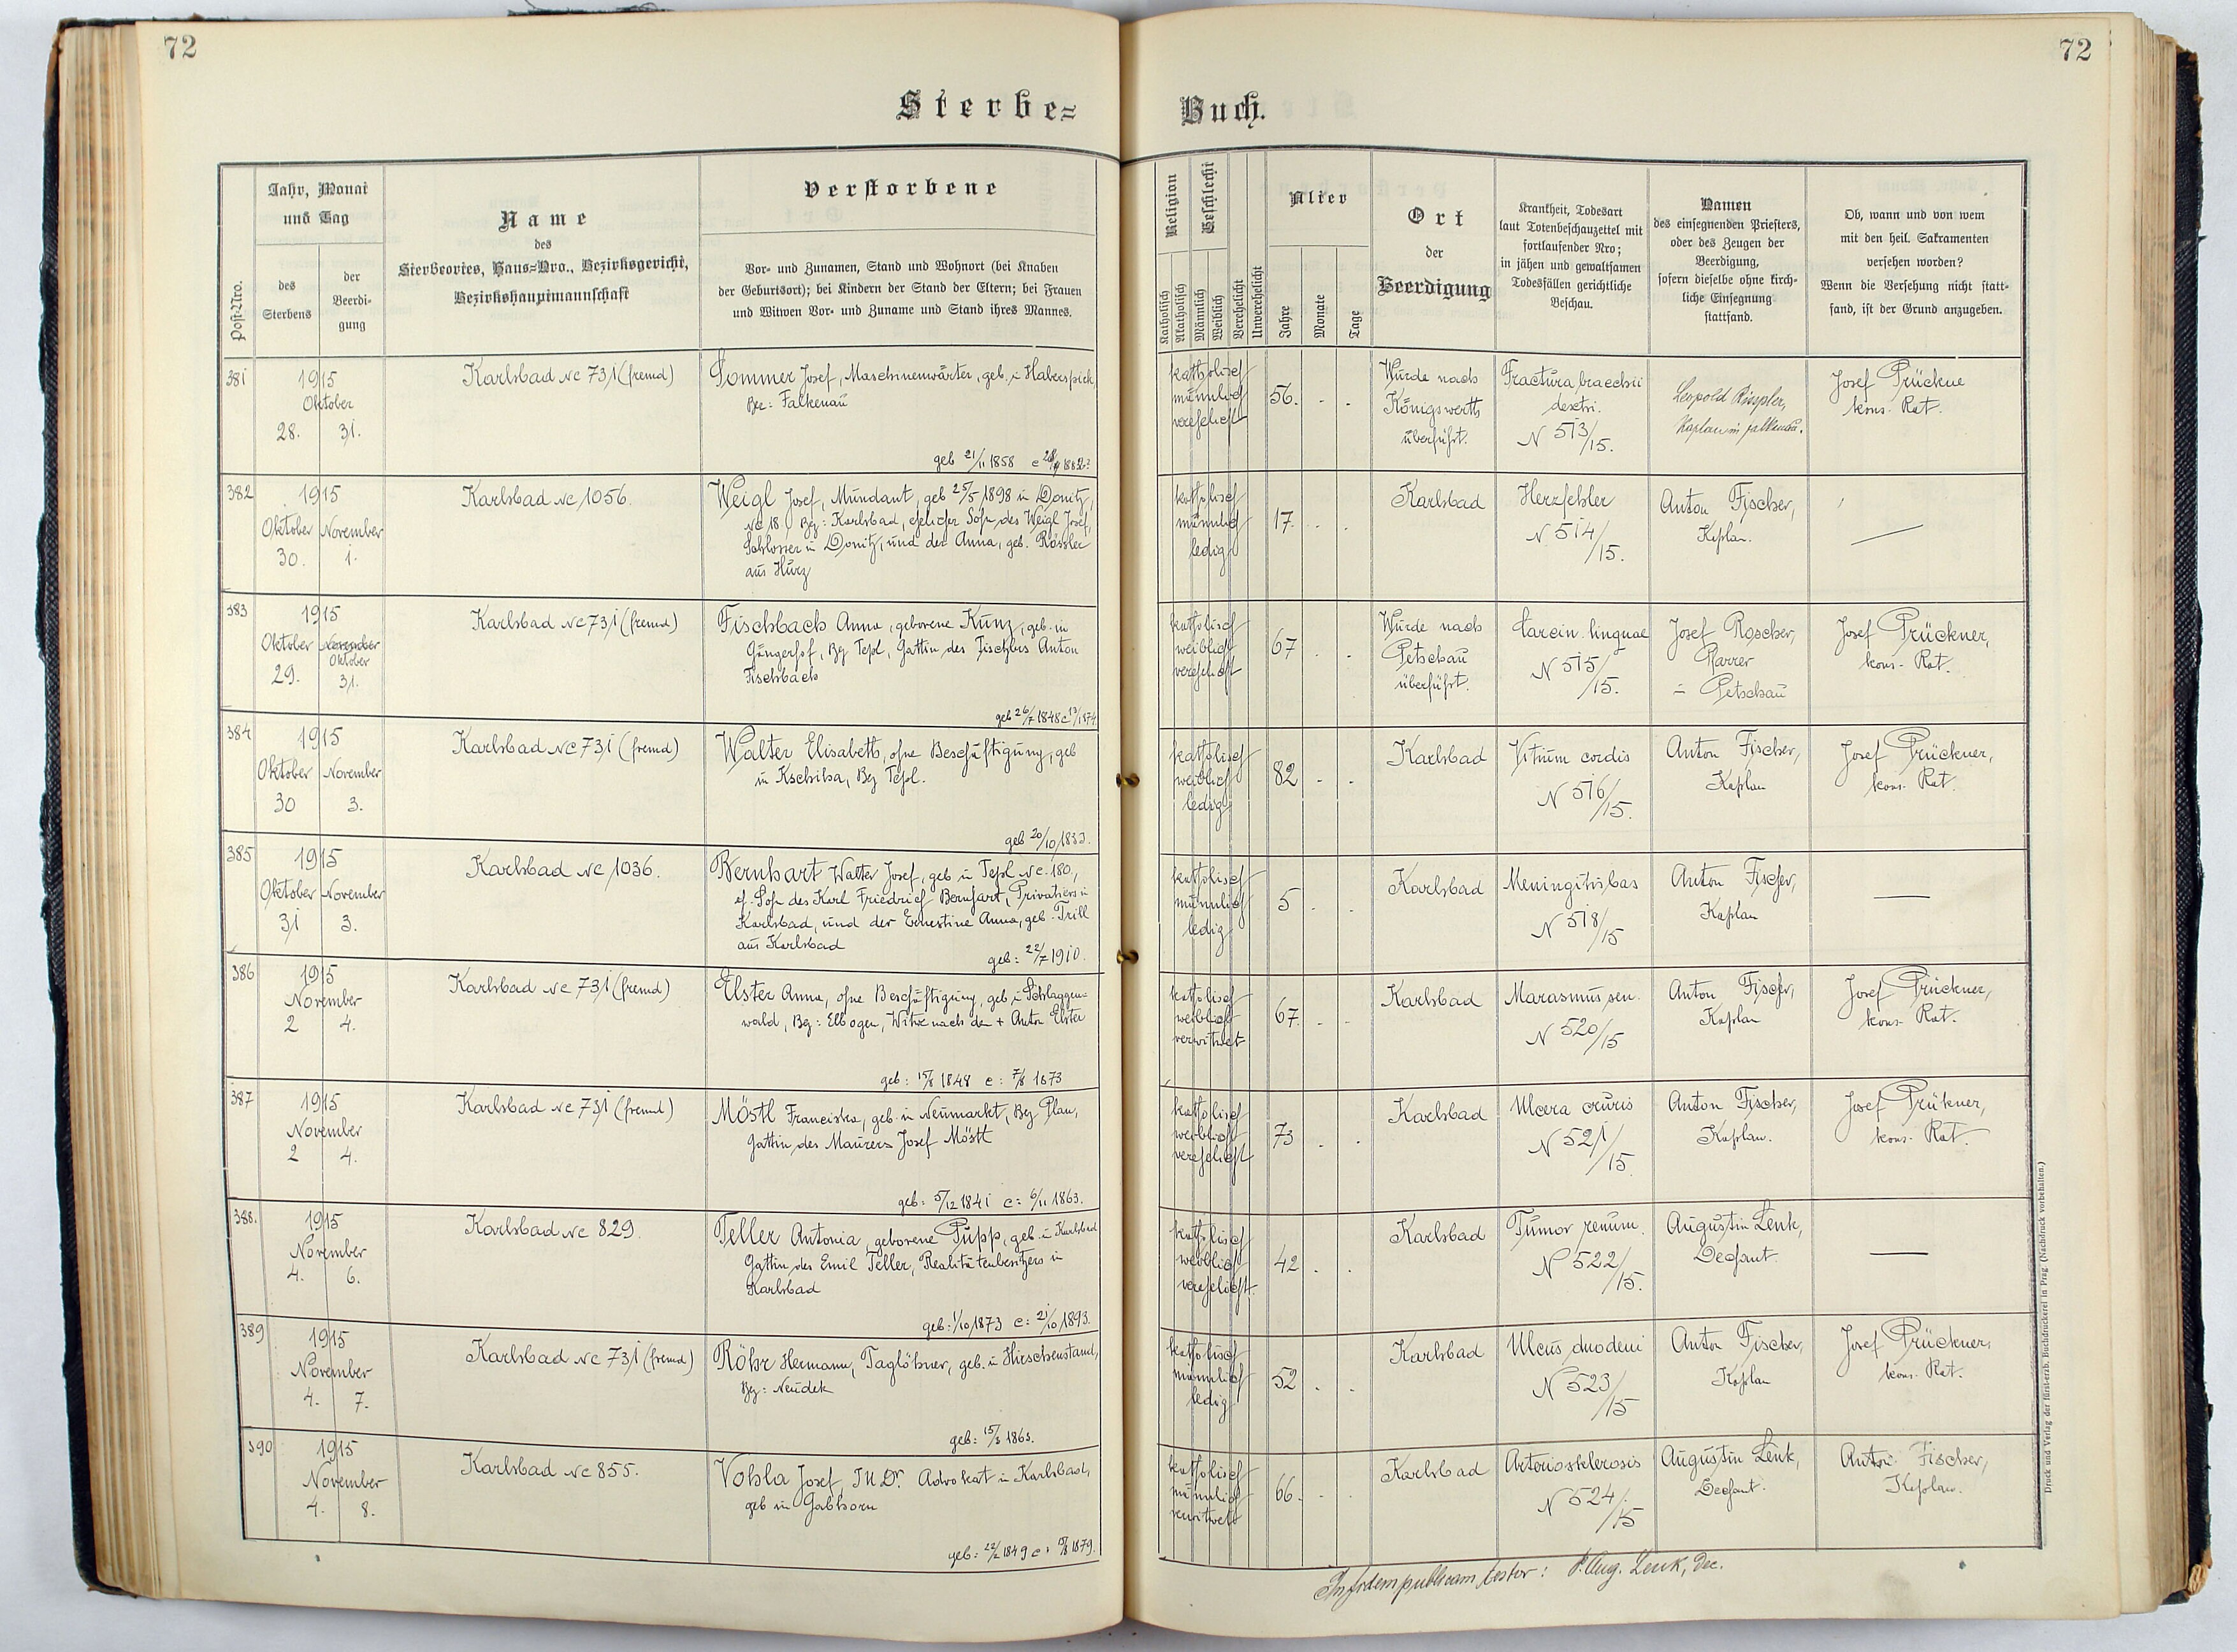 72
72
Sterbe=
Buch.
Post-Nro.
Jahr, Monat
und Tag
des
Sterbens
der
Beerdi-
gung
Name
des
Sterbeortes, Haus=Nro., Bezirksgericht,
Bezirkshauptmannschaft
Verstorbene
Vor- und Zunamen, Stand und Wohnort (bei Knaben
der Geburtsort); bei Kindern der Stand der Eltern; bei Frauen
und Witwen Vor- und Zuname und Stand ihres Mannes.
Religion
Katholisch
Akatholisch
Geschlecht
Männlich
Weiblich
Verehelicht
Unverehelicht
Alter
Jahre
Monate
Tage
Ort
der
Beerdigung
Krankheit, Todesart
laut Totenbeschauzettel mit
fortlaufender Nro;
in jähen und gewaltsamen
Todesfällen gerichtliche
Beschau.
Namen
des einsegnenden Priesters,
oder des Zeugen der
Beerdigung,
sofern dieselbe ohne kirch-
liche Einsegnung
stattfand.
Ob, wann und von wem
mit den heil. Sakramenten
versehen worden?
Wenn die Versehung nicht statt-
fand, ist der Grund anzugeben.
381
1915
Oktober
28. 31.
Karlsbad Nc 731 (fremd)
Sommer Josef, Maschinenwärter, geb. in Haberspirk,
Bez: Falkenau
geb 21/11 1858
katholisch
männlich
verehelicht
56. - -
Wurde nach
Königswerth
überführt.
Fractura bracchii
dextri.
N 513/15.
Leopold
Kaplan in Falkenau.
Josef Prückne
kons. Rat.
382
1915
Oktober November
30. 1.
Karlsbad Nc 1056.
Weigl Josef, Mundant, geb 25/5 1898 in Donitz,
Nc 18. Bez: Karlsbad, ehelicher Sohn des Weigl Josef,
Schlosser in Donitz, und der Anna, geb. Rössler
aus Hurz
katholisch
männlich
ledig
17. - -
Karlsbad
Herzfehler
N 514/15.
Anton Fischer,
Kaplan.
—
383
1915
Oktober November
Oktober
29. 31.
Karlsbad Nc 731 (fremd)
Fischbach Anna, geborene Kunz, geb. in
Gängerhof, Bez Tepl, Gattin des Anton
Fischbach
geb 26/7 1848 c 13/1 1874.
katholisch
weiblich
verehelicht
67 - -
Wurde nach
Petschau
überführt.
Carcin. linguae
N 515/15.
Josef Roscher,
Pfarrer
in Petschau
Josef Prückner,
kons. Rat.
384
1915
Oktober November
30 3.
Karlsbad Nc 731 (fremd)
Walter Elisabeth, ohne Beschäftigung, geb
in Kschiha, Bez Tepl.
geb 20/10 1833.
katholisch
weiblich
ledig
82 - -
Karlsbad
Vitium cordis
N 516/15.
Anton Fischer,
Kaplan
Josef Prückner,
kons. Rat.
385
1915
Oktober November
31 3.
Karlsbad Nc 1036.
Bernhart Walter Josef, geb in Tepl Nc. 180,
eh. Sohn des Karl Friedrich Bernhart, Privatiers in
Karlsbad, und der Ernestine Anna, geb. Trill
aus Karlsbad
geb: 22/7 1910.
katholisch
männlich
ledig
5 - -
Karlsbad
Meningitis bas
N 518/15
Anton Fischer,
Kaplan
—
386
1915
November
2 4.
Karlsbad Nc 731 (fremd)
Elster Anna, ohne Beschäftigung, geb. in Schlaggen-
wald, Bez: Elbogen, Witwe nach dem + Anton Elster
geb: 15/8 1848 c: 7/8 1873
katholisch
weiblich
verwitwet
67. - -
Karlsbad
Marasmus sen.
N 520/15
Anton Fischer,
Kaplan
Josef Prückner,
kons. Rat.
387
1915
November
2 4.
Karlsbad Nc 731 (fremd)
Möstl Franciska, geb. in Neumarkt, Bez Plan,
Gattin des Maurers Josef Möstl
geb: 5/12 1841 c: 6/11 1863.
katholisch
weiblich
verehelicht
73 - -
Karlsbad
Ulcera cruris
N 521/15
Anton Fischer,
Kaplan.
Josef Prükner,
kons. Rat.
388.
1915
November
4. 6.
Karlsbad Nc 829.
Teller Antonia, geborene Pupp, geb. in Karlsbad
Gattin des Emil Teller, Realitätenbesitzers in
Karlsbad
geb: 1/10 1873 c: 21/10 1893.
katholisch
weiblich
verehelicht.
42 - -
Karlsbad
Tumor renum.
N 522/15.
Augustin Lenk,
Dechant.
—
389
1915
November
4. 7.
Karlsbad Nc 731 (fremd)
Röhr Hermann, Taglöhner, geb. in Hirschenstand,
Bez: Neudek
geb: 15/3 1863.
katholisch
männlich
ledig
52 - -
Karlsbad
Ulcus duodeni
N 523/15
Anton Fischer,
Kaplan
Josef Prückner,
kons. Rat.
390
1915
November
4. 8.
Karlsbad Nc 855.
Vohla Josef, JU.Dr. Advokat in Karlsbad,
geb in Gabhorn
geb: 22/2 1849 c: 1879.
katholisch
männlich
verwitwet
66. - -
Karlsbad
Arteriosklerosis
N 524/15
Augustin Lenk,
Dechant.
Anton Fischer,
Kaplan.
In fidem publicam testor: P. Aug. Lenk, Dec.
Druck und Verlag der fürst-erzb. Buchdruckerei in Prag. (Nachdruck vorbehalten.)